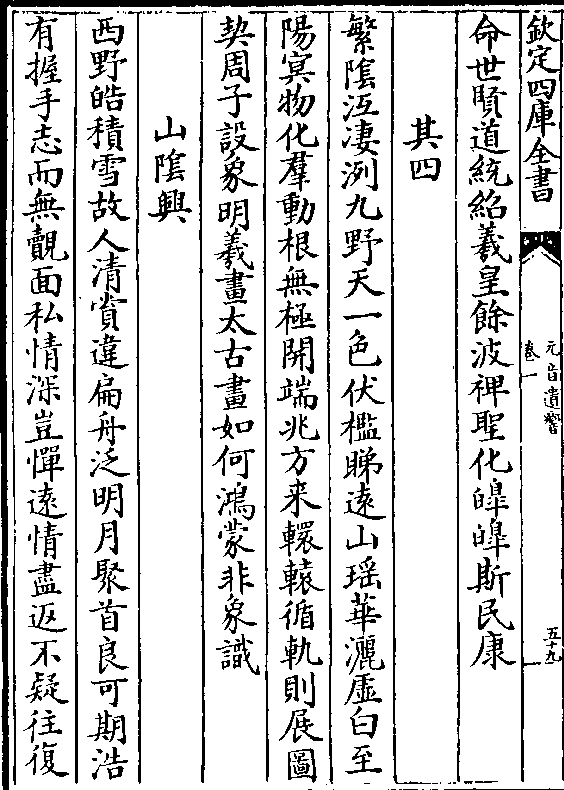 欽定四庫全書
元音遺響
卷一
五十九
命世賢道統紹羲皇餘波禆聖化皥皥斯民康
其四
繁隂沍凄洌九野天一色伏檻睇遠山瑶華灑虛白至
陽㝠物化羣動根無極開端兆方来轘轅循軌則展圖
契周子設象明羲畫太古畫如何鴻蒙非象識
山隂興
西野皓積雪故人清賞違扁舟泛明月聚首良可期浩
有握手志而無覿面私情深豈憚遠情盡返不疑往復